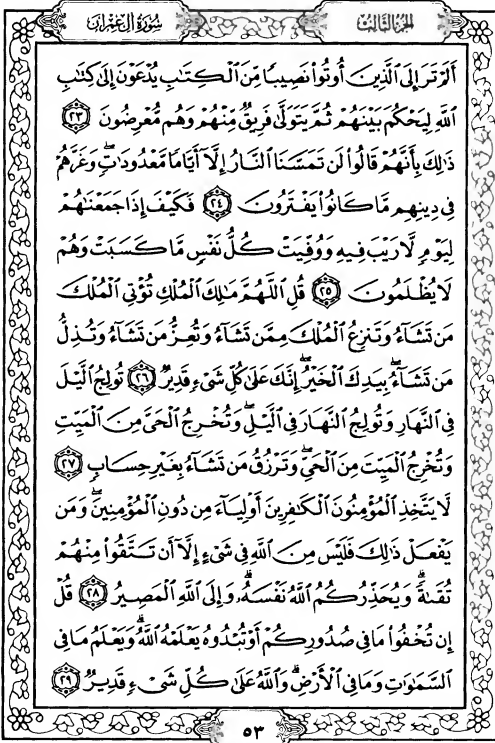 سُورَةُ آلِ عِمْرَان
الجُزْءُ الثَّالِثُ
أَلَمْ تَرَ إِلَى ٱلَّذِينَ أُوتُوا۟ نَصِيبًا مِّنَ ٱلْكِتَـٰبِ يُدْعَوْنَ إِلَىٰ كِتَـٰبِ
ٱللَّهِ لِيَحْكُمَ بَيْنَهُمْ ثُمَّ يَتَوَلَّىٰ فَرِيقٌ مِّنْهُمْ وَهُم مُّعْرِضُونَ ٢٣
ذَٰلِكَ بِأَنَّهُمْ قَالُوا۟ لَن تَمَسَّنَا ٱلنَّارُ إِلَّآ أَيَّامًا مَّعْدُودَٰتٍ ۖ وَغَرَّهُمْ
فِى دِينِهِم مَّا كَانُوا۟ يَفْتَرُونَ ٢٤ فَكَيْفَ إِذَا جَمَعْنَـٰهُمْ
لِيَوْمٍ لَّا رَيْبَ فِيهِ وَوُفِّيَتْ كُلُّ نَفْسٍ مَّا كَسَبَتْ وَهُمْ
لَا يُظْلَمُونَ ٢٥ قُلِ ٱللَّهُمَّ مَـٰلِكَ ٱلْمُلْكِ تُؤْتِى ٱلْمُلْكَ
مَن تَشَآءُ وَتَنزِعُ ٱلْمُلْكَ مِمَّن تَشَآءُ وَتُعِزُّ مَن تَشَآءُ وَتُذِلُّ
مَن تَشَآءُ ۖ بِيَدِكَ ٱلْخَيْرُ ۖ إِنَّكَ عَلَىٰ كُلِّ شَىْءٍ قَدِيرٌ ٢٦ تُولِجُ ٱلَّيْلَ
فِى ٱلنَّهَارِ وَتُولِجُ ٱلنَّهَارَ فِى ٱلَّيْلِ ۖ وَتُخْرِجُ ٱلْحَىَّ مِنَ ٱلْمَيِّتِ
وَتُخْرِجُ ٱلْمَيِّتَ مِنَ ٱلْحَىِّ ۖ وَتَرْزُقُ مَن تَشَآءُ بِغَيْرِ حِسَابٍ ٢٧
لَّا يَتَّخِذِ ٱلْمُؤْمِنُونَ ٱلْكَـٰفِرِينَ أَوْلِيَآءَ مِن دُونِ ٱلْمُؤْمِنِينَ ۖ وَمَن
يَفْعَلْ ذَٰلِكَ فَلَيْسَ مِنَ ٱللَّهِ فِى شَىْءٍ إِلَّآ أَن تَتَّقُوا۟ مِنْهُمْ
تُقَىٰةً ۗ وَيُحَذِّرُكُمُ ٱللَّهُ نَفْسَهُۥ ۗ وَإِلَى ٱللَّهِ ٱلْمَصِيرُ ٢٨ قُلْ
إِن تُخْفُوا۟ مَا فِى صُدُورِكُمْ أَوْ تُبْدُوهُ يَعْلَمْهُ ٱللَّهُ ۗ وَيَعْلَمُ مَا فِى
ٱلسَّمَـٰوَٰتِ وَمَا فِى ٱلْأَرْضِ ۗ وَٱللَّهُ عَلَىٰ كُلِّ شَىْءٍ قَدِيرٌ ٢٩
٥٣